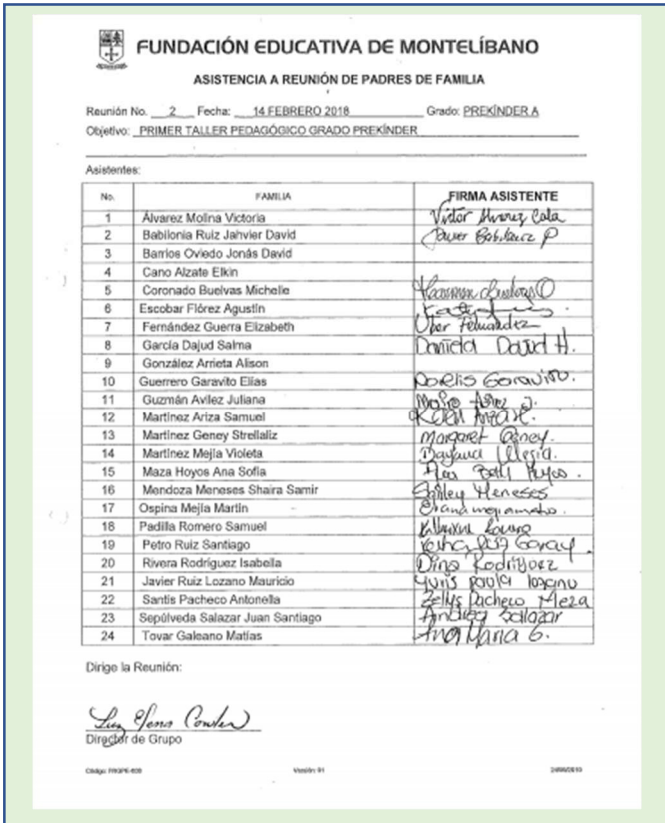 FUNDACIÓN EDUCATIVA DE MONTELÍBANO
ASISTENCIA A REUNIÓN DE PADRES DE FAMILIA
Reunión No. 2 Fecha: 14 FEBRERO 2018 Grado: PREKÍNDER A
Objetivo: PRIMER TALLER PEDAGÓGICO GRADO PREKÍNDER
Asistentes:
No. FAMILIA FIRMA ASISTENTE
1 Álvarez Molina Victoria Victor Alvarez Cala
2 Babilonia Ruiz Jahvier David Javier Babilonia P
3 Barrios Oviedo Jonás David
4 Cano Alzate Elkin
5 Coronado Buelvas Michelle
6 Escobar Flórez Agustín
7 Fernández Guerra Elizabeth Uber Fernandez
8 García Dajud Salma Daniela Dajud H.
9 González Arrieta Alison
10 Guerrero Garavito Elías Dorelis Garavito.
11 Guzmán Avilez Juliana
12 Martínez Ariza Samuel Karen
13 Martínez Geney Strellaliz Margaret Geney.
14 Martínez Mejía Violeta Dayana Mejia.
15 Maza Hoyos Ana Sofia Hoyos.
16 Mendoza Meneses Shaira Samir Meneses
17 Ospina Mejía Martín
18 Padilla Romero Samuel
19 Petro Ruiz Santiago Ruiz Garay
20 Rivera Rodríguez Isabella Dina Rodriguez
21 Javier Ruiz Lozano Mauricio Yuris paola lozano
22 Santis Pacheco Antonella Zellys Pacheco Meza
23 Sepúlveda Salazar Juan Santiago Andrea Salazar
24 Tovar Galeano Matías Ana Maria G.
Dirige la Reunión:
Luz Elena
Director de Grupo
Versión: 01